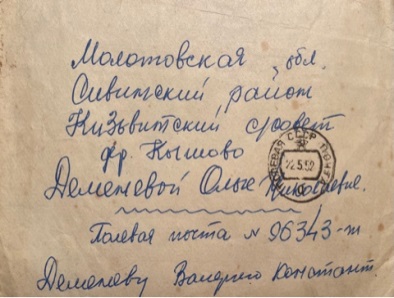 Молотовская обл.
Сивинский район
Кизьвинский с/совет
др. Кышово
Деменевой Ольге Николаевне.
Полевая почта N 96343-ж
Деменеву Валерию Констант.
ПОЛЕВАЯ ПОЧТА СССР
22.5.52